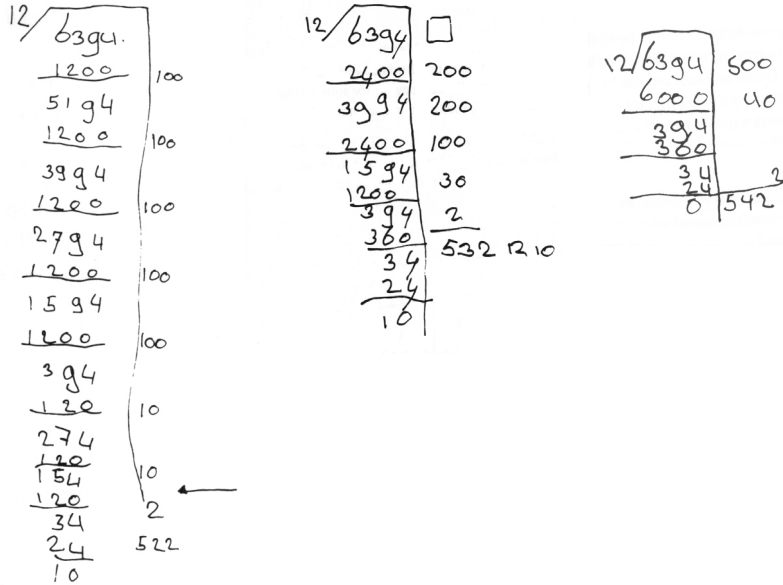 12/6394.
1200 100
5194
1200 100
3994
1200 100
2794
1200 100
1594
1200 100
394
120 10
274
120 10
154
120
34 2
24 522
10
12/6394
2400 200
3994 200
2400 100
1594
1200 30
394 2
360 532 R 10
34
24
10
12/6394 500
6000 40
394
360
34 2
24
0 542